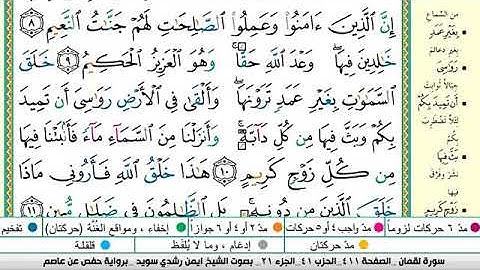 إِنَّ الَّذِينَ ءَامَنُوا۟ وَعَمِلُوا۟ الصَّـٰلِحَـٰتِ لَهُمْ جَنَّـٰتُ النَّعِيمِ ٨
خَـٰلِدِينَ فِيهَا ۖ وَعْدَ اللَّهِ حَقًّا ۚ وَهُوَ الْعَزِيزُ الْحَكِيمُ ٩ خَلَقَ
السَّمَـٰوَٰتِ بِغَيْرِ عَمَدٍ تَرَوْنَهَا ۖ وَأَلْقَىٰ فِى الْأَرْضِ رَوَٰسِىَ أَن تَمِيدَ
بِكُمْ وَبَثَّ فِيهَا مِن كُلِّ دَآبَّةٍ ۚ وَأَنزَلْنَا مِنَ السَّمَآءِ مَآءً فَأَنۢبَتْنَا فِيهَا
مِن كُلِّ زَوْجٍ كَرِيمٍ ١٠ هَـٰذَا خَلْقُ اللَّهِ فَأَرُونِى مَاذَا
خَلَقَ الَّذِينَ مِن دُونِهِۦ ۚ بَلِ الظَّـٰلِمُونَ فِى ضَلَـٰلٍ مُّبِينٍ ١١
من السَّماع
بِغَيْرِ عَمَدٍ
بغير دعائم
رَوَٰسِىَ
جبالًا ثوابت
أَن تَمِيدَ بِكُمْ
لئلا تضطرب
بكم
بَثَّ فِيهَا
نشر وفرّق
فيها
زَوْجٍ كَرِيمٍ
مدّ ٦ حركات لزوماً مدّ واجب ٤ أو ٥ حركات مدّ ٢ أو ٤ أو ٦ جوازاً إخفاء، ومواقع الغُنَّة (حركتان) تفخيم
مدّ حركتان إدغام، وما لا يُلفَظ قلقلة
سورة لقمان ـ الصفحة ٤١١ ـ الحزب ٤١ ـ الجزء ٢١ ـ بصوت الشيخ ايمن رشدي سويد ـ برواية حفص عن عاصم